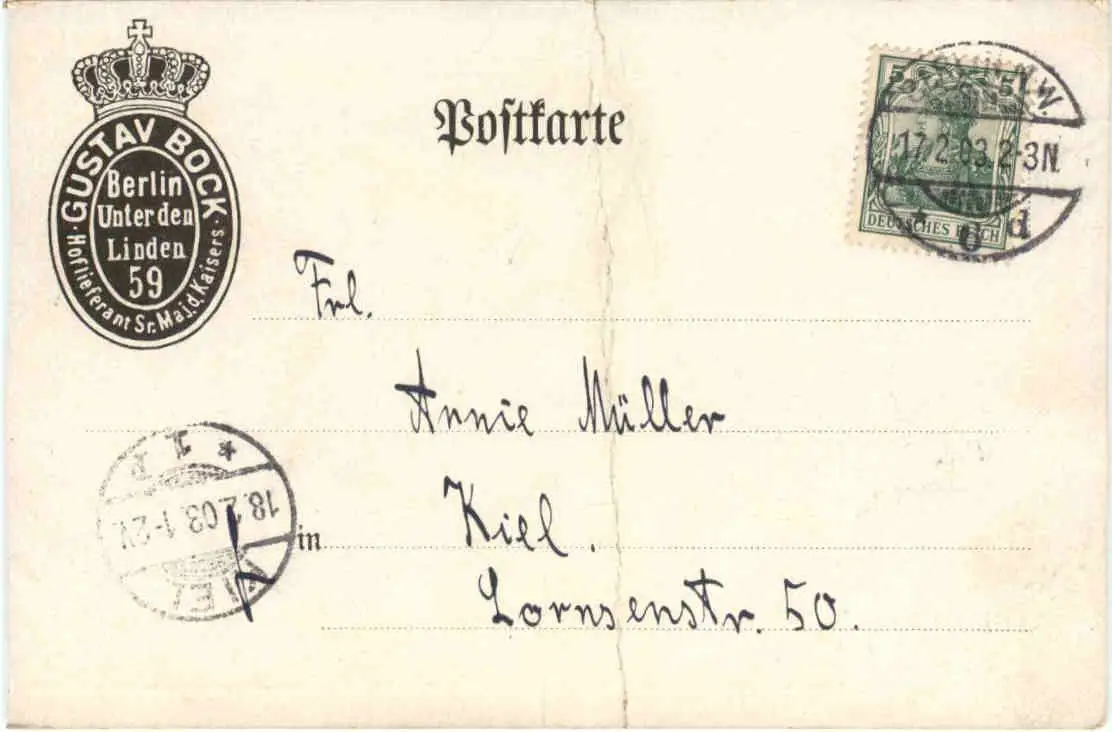 GUSTAV BOCK
Berlin
Unter den
Linden
59
Hoflieferant Sr. Maj. d. Kaisers.
Postkarte
5 5
DEUTSCHES REICH
N.W.
17.2.03.2-3N.
* d
Frl.
Annie Müller
in Kiel.
Lornsenstr. 50.
KIEL
18.2.03.1-2V.
* 1